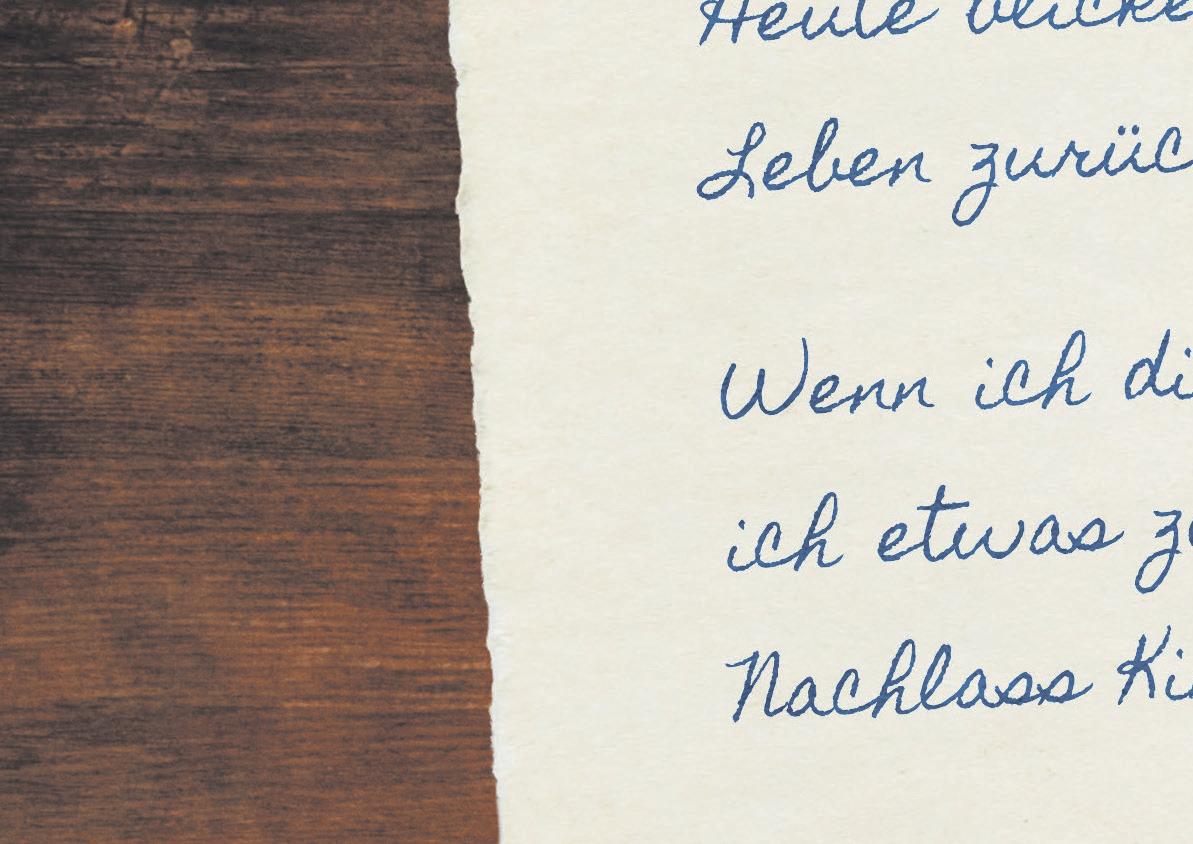 Heute blicke
Leben zurüc
Wenn ich di
ich etwas zu
Nachlass Ki